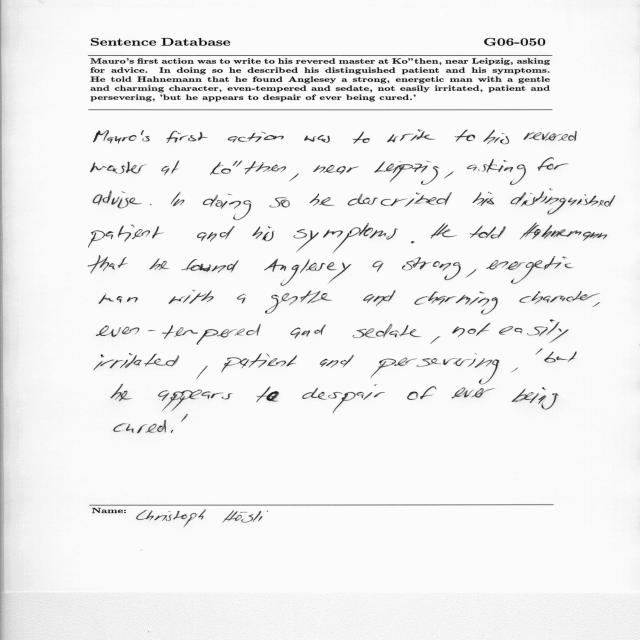 Sentence Database G06-050
Mauro's first action was to write to his revered master at Ko"then, near Leipzig, asking
for advice. In doing so he described his distinguished patient and his symptoms.
He told Hahnemann that he found Anglesey a strong, energetic man with a gentle
and charming character, even-tempered and sedate, not easily irritated, patient and
persevering, 'but he appears to despair of ever being cured.'
Mauro's first action was to write to his revered
master at Ko"then, near Leipzig, asking for
advise. In doing so he described his distinguished
patient and his symptoms. He told Hahnemann
that he found Anglesey a strong, energetic
man with a gentle and charming character,
even-tempered and sedate, not easily
irritated, patient and persevering, 'but
he appears to despair of ever being
cured.'
Name: Christoph Hösli